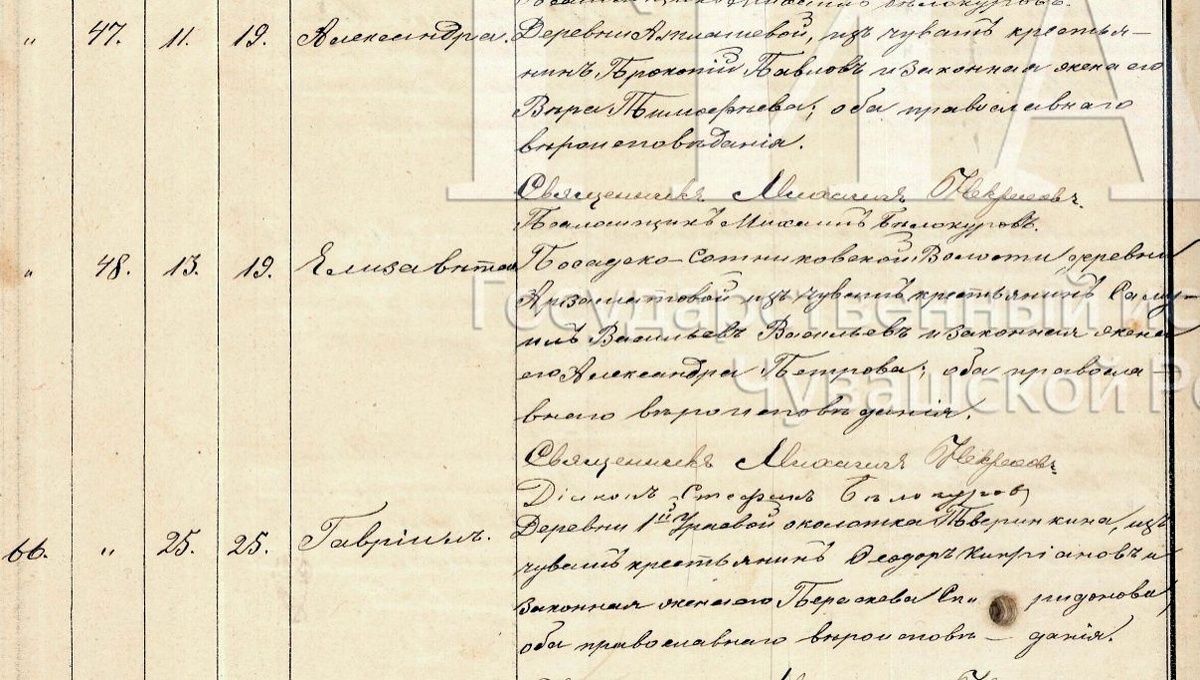 " 47. 11. 19. Александра. Деревни Акташевой, изъ чувашъ крестья-
нинъ Прокопій Павловъ и законная жена его
Вѣра Тимофѣева; оба православнаго
вѣроисповѣданія.
Священникъ Михаилъ Некрасовъ.
Псаломщикъ Михаилъ Бѣлокуровъ.
" 48. 13. 19. Елизавета Посадско-Сотниковской Волости деревни
Арзаматовой изъ чувашъ крестьянинъ Саму-
илъ Васильевъ Васильевъ и законная жена
его Александра Петрова; оба правосла-
внаго вѣроисповѣданія.
Священникъ Михаилъ Некрасовъ
Діаконъ Стефанъ Бѣлокуровъ
66. " 25. 25. Гавріилъ. Деревни 1ой околотка Тверинкина, изъ
чувашъ крестьянинъ Ѳеодоръ Кипріановъ и
законная жена его Параскева Спиридонова,
оба православнаго вѣроисповѣ-данія.
ГИА
Государственный ис
Чувашской Ре